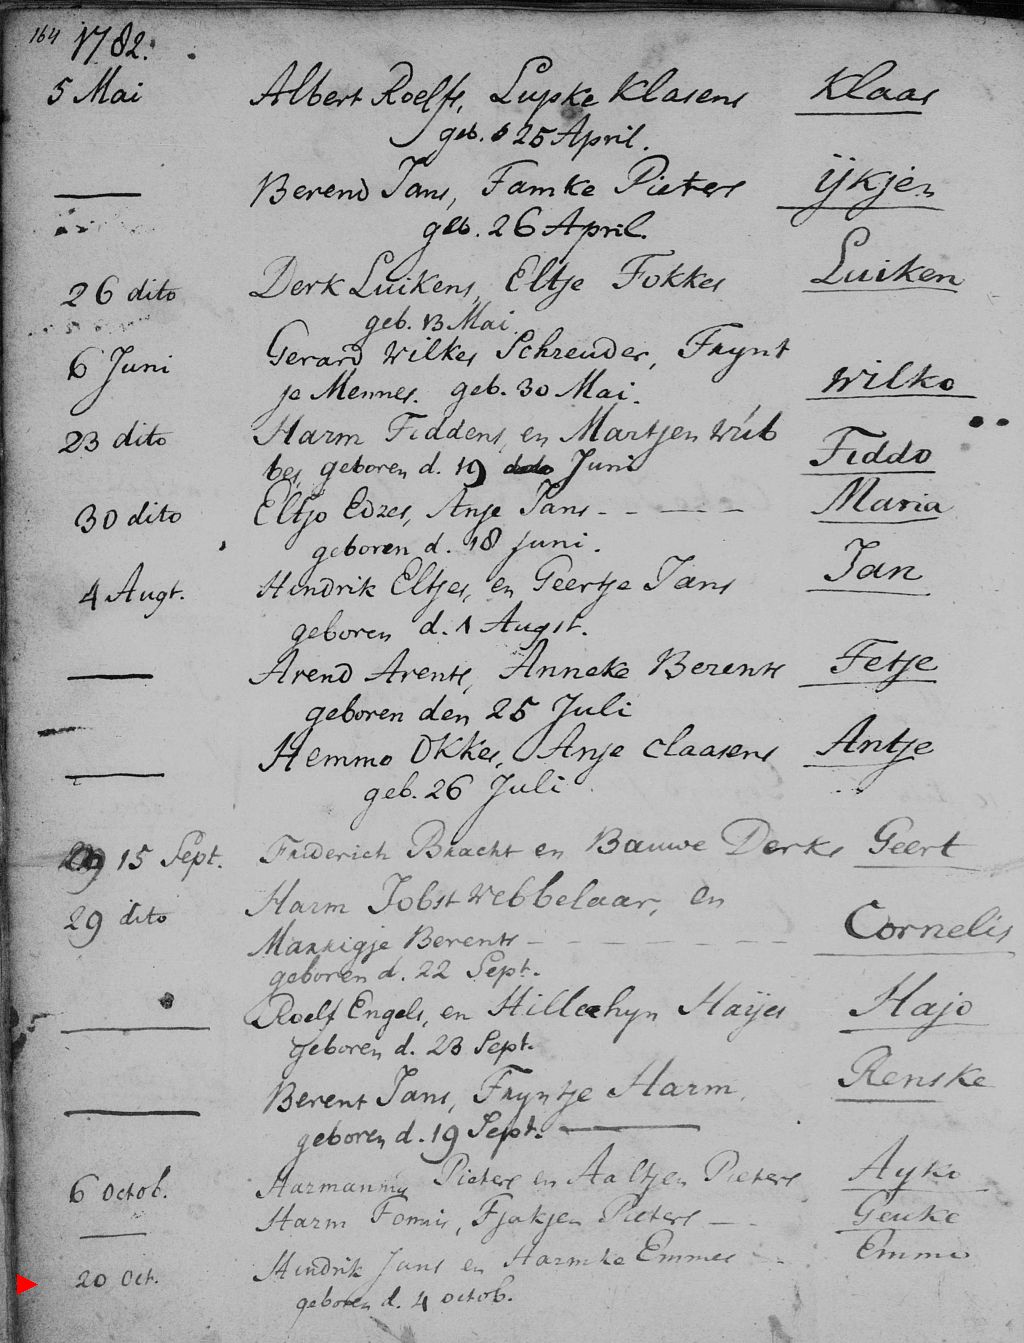 164 1782.
5 Mai Albert Roelfs, Lupke Klasens Klaas
geb. 25 April.
Berend Jans, Famke Pieters ijkjen
geb. 26 April.
26 dito Derk Luikens, Eltje Fokkes Luiken
geb. 13 Mai.
6 Juni Gerard Wilkes Schreuder, Frynt
je Mennes. geb. 30 Mai. Wilko
23 dito Harm Fiddens, en Martjen Wúb
bes geboren d. 19 Juni Fiddo
30 dito Eltjo Edzes, Anje Jans - - — — — Maria
geboren d. 18 Juni.
4 Augt. Hindrik Eltjes, en Geertje Jans Jan
geboren d. 1 Augst.
Arend Arents, Anneke Berents Fetje
geboren den 25 Juli
Hemmo Okkes, Anje Claasens Antje
geb. 26 Juli
15 Sept. Friderich Bracht en Bauwe Derks Geert
29 dito Harm Jobst Webbelaar, en
Berents Cornelis
geboren d. 22 Sept.
Roelf Engels, en Hillechyn Haijes Hajo
geboren d. 23 Sept.
Berent Jans, Fryntje Harm Renske
geboren d. 19 Sept.
6 Octob. Harmannus Pieters en Aaltjen Pieters Ayko
Harm Fjokjen Pieters Geuke
20 Oct. Hindrik Jans en Harmke Emmes Emmo
geboren d. 4 octob.